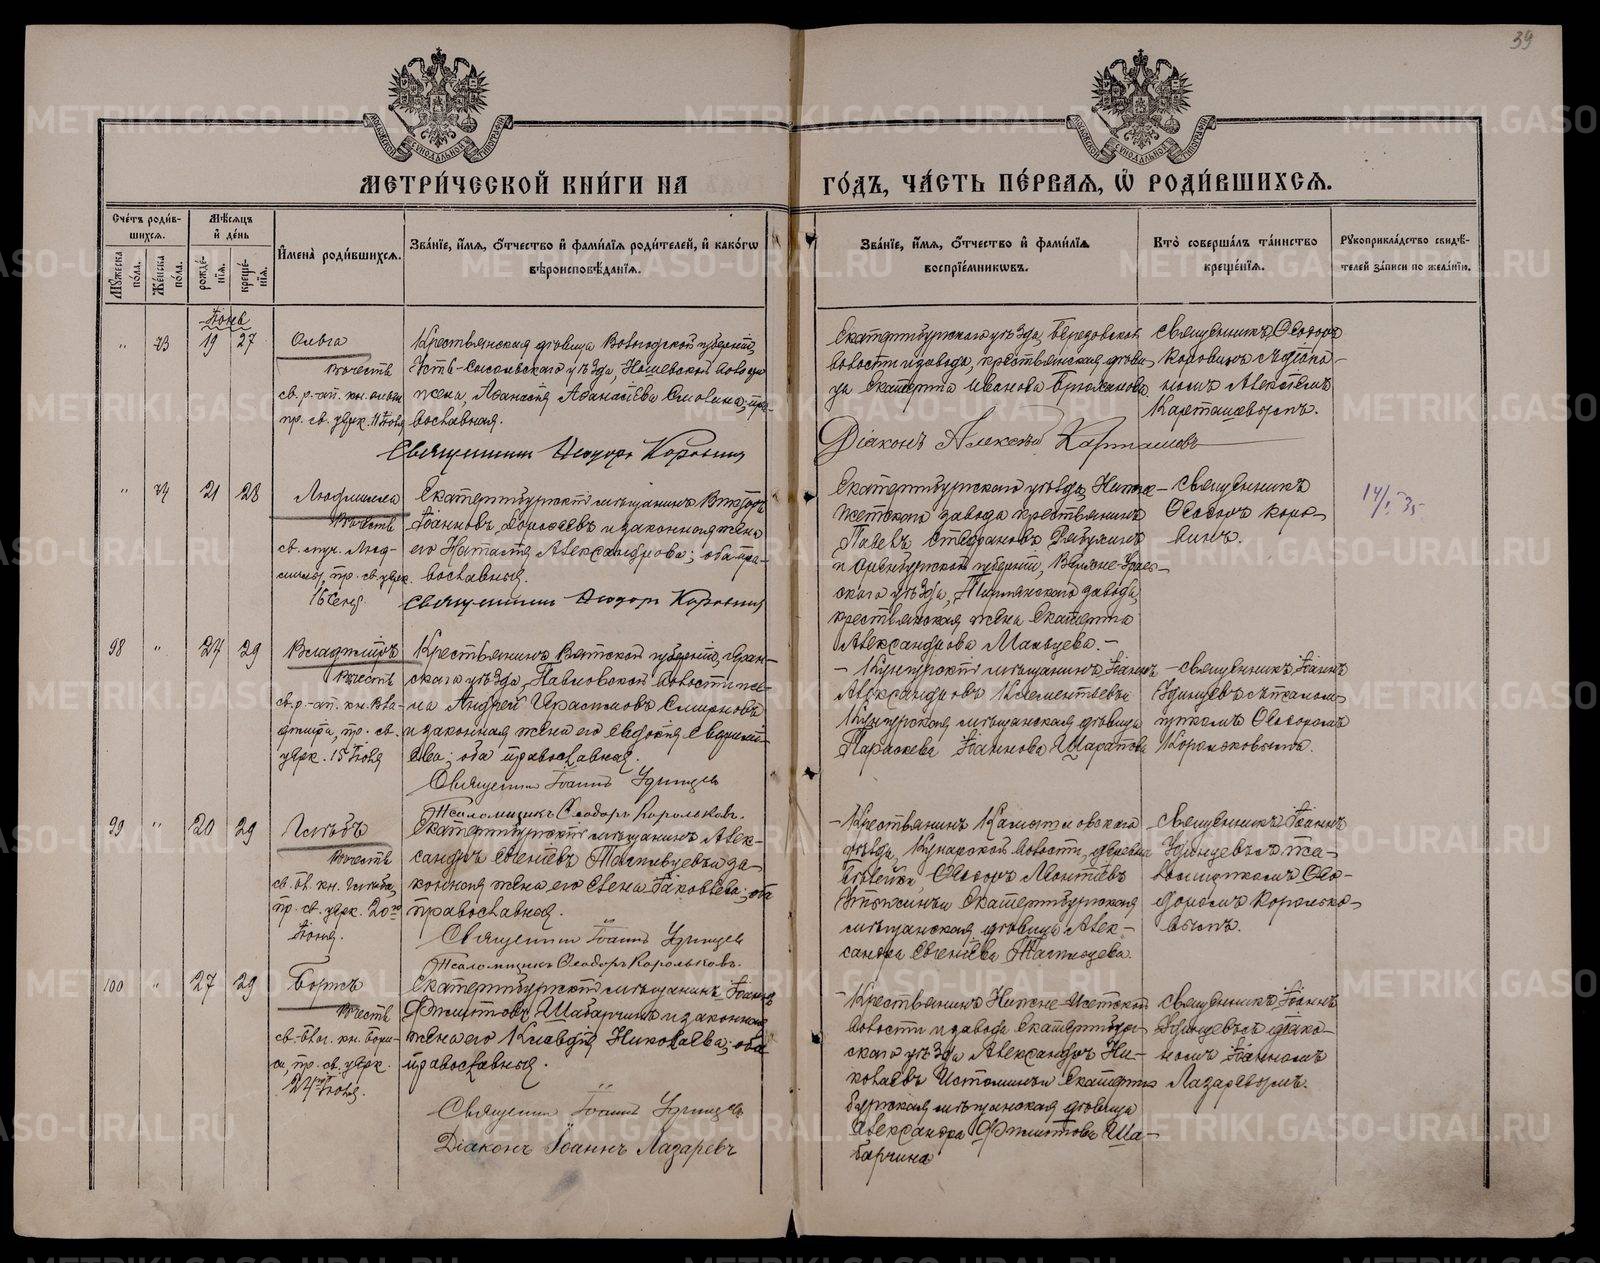 39
МЕТРИ́ЧЕСКОЙ КНИ́ГИ НА
ГО́ДЪ, ЧА́СТЬ ПЕ́РВАЯ, Ѡ҆ РОДИ́ВШИХСѦ.
Сче́тъ роди́в-
шихсѧ.
Мѣ́сѧцъ
и҆ де́нь
Мꙋ́жеска по́ла.
Же́нска по́ла.
рожде́-нїѧ.
креще́-нїѧ.
И҆мена̀ роди́вшихсѧ.
Зва́нїе, и҆́мѧ, о҆́тчество и҆ фами́лїѧ роди́телей, и҆ како́гѡ
вѣроисповѣ́данїѧ.
Зва́нїе, и҆́мѧ, о҆́тчество и҆ фами́лїѧ
воспрїе́мникѡвъ.
Кто̀ соверша́лъ та́инство
креще́нїѧ.
Рꙋкоприкла́дство свидѣ́-
телей за́писи по жела́нїю.
Іюнь
" 73 19 27
Ольга
въ честь
св. р-ап. кн. Ольги
пр. св. церк. 11 Іюля
Крестьянская дѣвица Вологодской губерніи,
Усть-Сысольскаго уѣзда,
Аѳанасія Аѳанасіева
вославная.
Священникъ Ѳеодоръ Коровинъ
Екатеринбургскаго уѣзда, Березовской
волости и завода, крестьянская дѣви-
ца Екатерина Иванова Брюханова
Діаконъ Алексѣй Карташевъ
Священникъ Ѳеодоръ
Коровинъ съ діако-
номъ Алексѣемъ
Карташевымъ.
" 74 21 28
Людмилла
въ честь
св. муч. Люд-
миллы, пр. св. церк.
16 Сент.
Екатеринбургскій мѣщанинъ Викторъ
Іоанновъ и законная жена
его Наталія Александрова; оба пра-
вославные.
Священникъ Ѳеодоръ Коровинъ
Екатеринбургскаго уѣзда, Нижне-
Исетскаго завода крестьянинъ
Павелъ Стефановъ Рябухинъ
и Оренбургской губерніи, Верхне-Ураль-
скаго уѣзда, Тирлянскаго завода,
крестьянская жена Екатерина
Александрова Мальцева.-
Священникъ
Ѳеодоръ Коро-
винъ.
14/I 35
98 " 24 29
Владиміръ
въ честь
св. р-ап. кн. Вла-
диміра, пр. св.
церк. 15 Іюля
Крестьянинъ Вятской губерніи, Яран-
скаго уѣзда, Павловской волости
Андрей Смирновъ
и законная жена его Евдокія
ева; оба православные.
Священникъ Іоаннъ Удинцевъ
Псаломщикъ Ѳеодоръ Корольковъ.
- Кунгурскій мѣщанинъ Іоаннъ
Александровъ Клементьевъ и
Кунгурская мѣщанская дѣвица
Параскева Іоаннова Шарапова
- Священникъ Іоаннъ
Удинцевъ съ псалом-
щикомъ Ѳеодоромъ
Корольковымъ.
99 " 20 29
Глѣбъ
въ честь
св. бл. кн. Глѣба,
пр. св. церк. 20го
Іюня.
Екатеринбургскій мѣщанинъ Алек-
сандръ Евгеніевъ и за-
конная жена его Елена Іаковлева; оба
православные.
Священникъ Іоаннъ Удинцевъ
Псаломщикъ Ѳеодоръ Корольковъ.
- Крестьянинъ Камышловскаго
уѣзда, Кунарской волости, деревни
Ѳеодоръ Леонтіевъ
Екатеринбургская
мѣщанская дѣвица Алек-
сандра Евгеніева
Священникъ Іоаннъ
Удинцевъ съ пса-
ломщикомъ Ѳео-
доромъ Королько-
вымъ.
100 " 27 29
Борисъ
въ честь
св. благ. кн. Бори-
са, пр. св. церк.
24го Іюля.
Екатеринбургскій мѣщанинъ Іоаннъ
Филиповъ Шабарчинъ и законная
жена его Клавдія Николаева; оба
православные.
Священникъ Іоаннъ Удинцевъ
Діаконъ Іоаннъ Лазаревъ
- Крестьянинъ Нижне-Исетской
волости и завода Екатеринбург-
скаго уѣзда Александръ Ни-
колаевъ Истоминъ и Екатерин-
бургская мѣщанская дѣвица
Александра Филипова Ша-
барчина
Священникъ Іоаннъ
Удинцевъ съ діако-
номъ Іоанномъ
Лазаревымъ.
METRIKI.GASO-URAL.RU